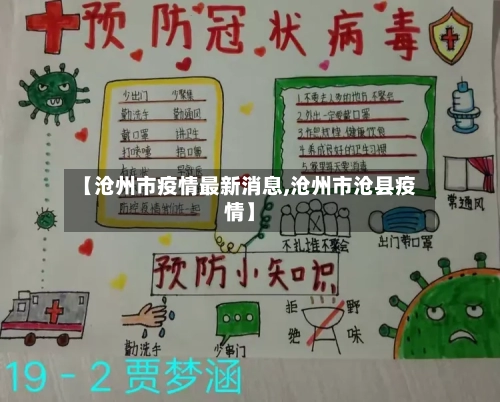 预防冠状病毒
少出门 少聚集
勤洗手 勤通风
戴口罩 讲卫生
打喷嚏 捂口鼻
1.不要去人多的地方 不聚会
2.外出一定要戴口罩
3.作息规律 健康饮食
4.养成良好的卫生习惯
【沧州市疫情最新消息,沧州市沧县疫
情】
常通风
不扎堆不聚会
出门带口罩
预防小知识
勤洗手
少串门
拒绝
野味
19-2 贾梦涵